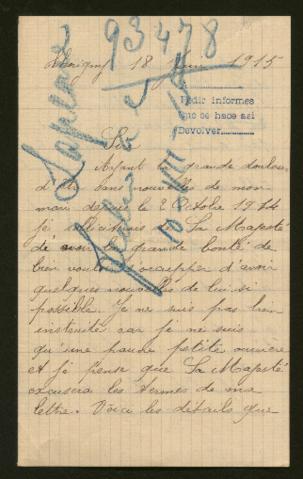 93478
18 Juin 1915
Pedir informes
que se hace así
Devolver
Sir
Ayant la grande douleur
d'être sans nouvelle de mon
mari depuis le 2 Octobre 1914
je sa Majesté
de avoir la grande bonté de
bien vouloir occupper d'avoir
quelques nouvelles de lui si
possible. Je ne suis pas bien
instruite car je ne suis
qu'une pauvre petite ouvrière
et je pense que Sa Majesté
excusera les termes de ma
lettre. Voici les détails que